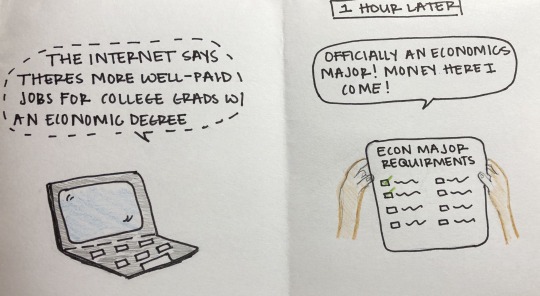 THE INTERNET SAYS
THERES MORE WELL-PAID
JOBS FOR COLLEGE GRADS W/
AN ECONOMIC DEGREE
1 HOUR LATER
OFFICIALLY AN ECONOMICS
MAJOR! MONEY HERE I
COME!
ECON MAJOR
REQUIRMENTS